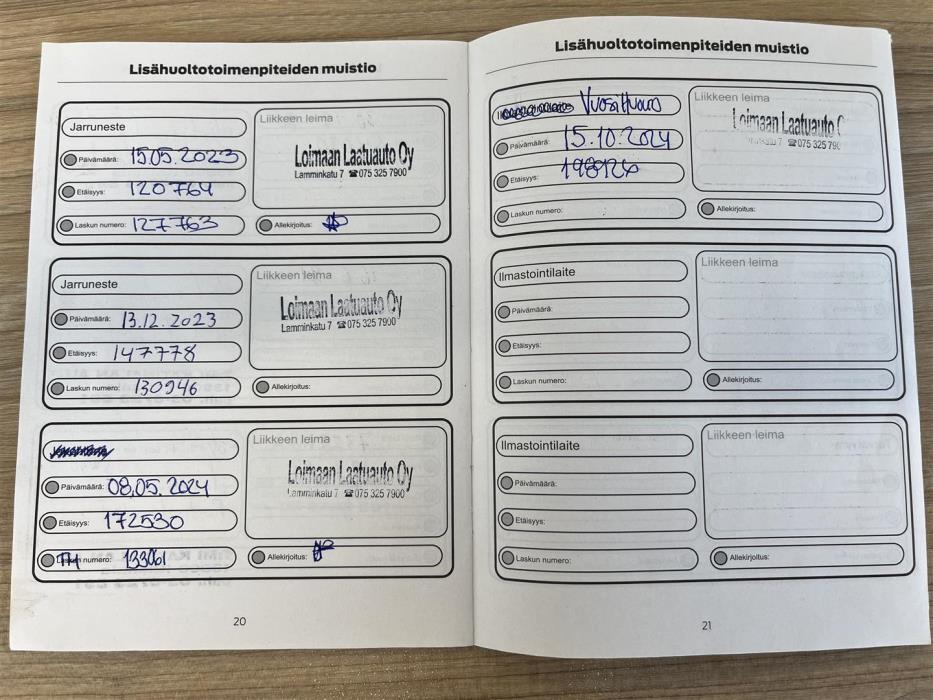 Lisähuoltotoimenpiteiden muistio
Jarruneste
Päivämäärä: 15.05.2023
Etäisyys: 120764
Laskun numero: 127763
Liikkeen leima
Loimaan Laatuauto Oy
Lamminkatu 7 ☎075 325 7900
Allekirjoitus:
Jarruneste
Päivämäärä: 13.12.2023
Etäisyys: 147778
Laskun numero: 130946
Liikkeen leima
Loimaan Laatuauto Oy
Lamminkatu 7 ☎075 325 7900
Allekirjoitus:
Päivämäärä: 08.05.2024
Etäisyys: 172530
TH numero: 133061
Liikkeen leima
Loimaan Laatuauto Oy
Lamminkatu 7 ☎075 325 7900
Allekirjoitus:
20
Lisähuoltotoimenpiteiden muistio
Vuosihuolto
Päivämäärä: 15.10.2024
Etäisyys: 198126
Laskun numero:
Liikkeen leima
Loimaan Laatuauto
☎075 325 790
Allekirjoitus:
Ilmastointilaite
Päivämäärä:
Etäisyys:
Laskun numero:
Liikkeen leima
Allekirjoitus:
Ilmastointilaite
Päivämäärä:
Etäisyys:
Laskun numero:
Liikkeen leima
Allekirjoitus:
21